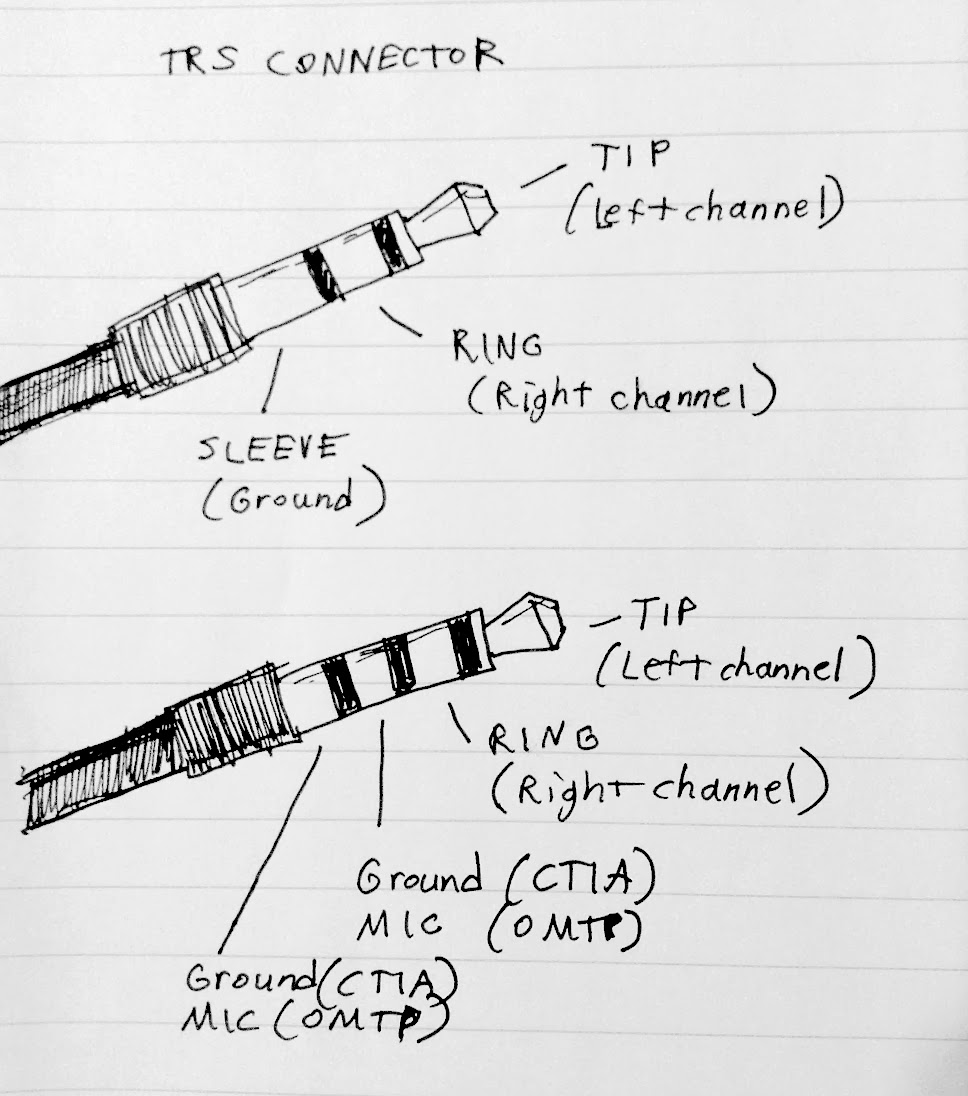 TRS CONNECTOR
TIP
(Left channel)
RING
(Right channel)
SLEEVE
(Ground)
TIP
(Left channel)
RING
(Right channel)
Ground (CTIA)
MIC (OMTP)
Ground (CTIA)
MIC (OMTP)